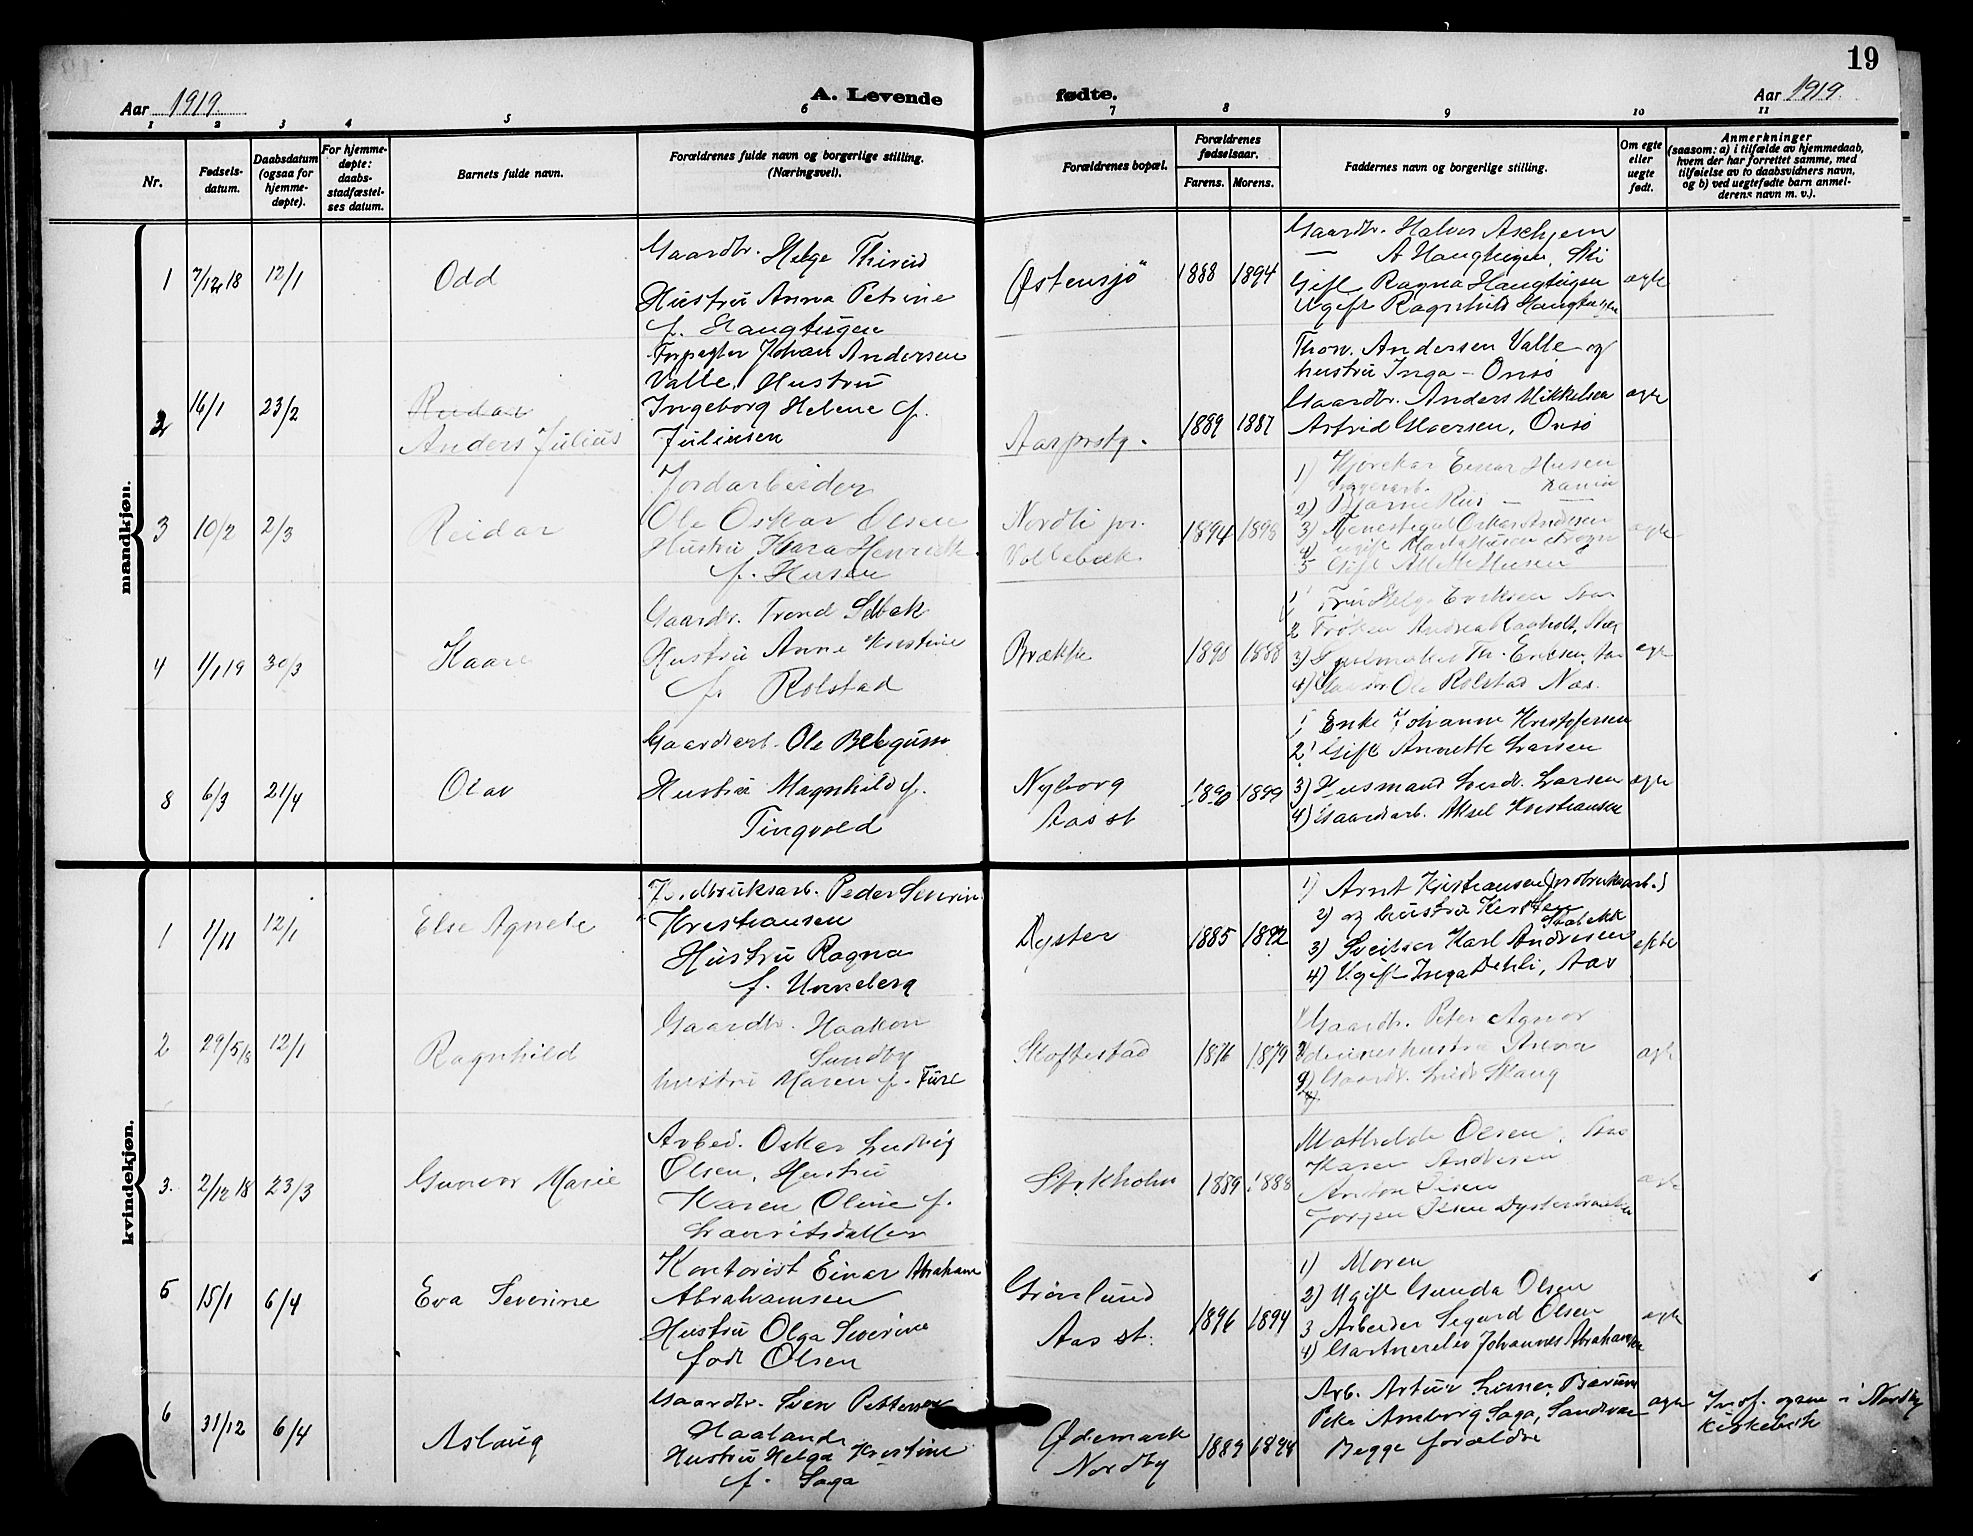 19
Aar 1919.
A. Levende
fødte.
Aar 1919.
1 2 3 4 5 6 7 8 9 10 11
Nr.
Fødsels-
datum.
Daabsdatum
(ogsaa for
hjemme-
døpte).
For hjemme-
døpte:
daabs-
stadfæstel-
ses datum.
Barnets fulde navn.
Forældrenes fulde navn og borgerlige stilling.
(Næringsvei).
Forældrenes bopæl.
Forældrenes
fødselsaar.
Farens. Morens.
Faddernes navn og borgerlige stilling.
Om egte
eller
uegte
født.
Anmerkninger
(saasom: a) i tilfælde av hjemmedaab,
hvem der har forrettet samme, med
tilføielse av to daabsvidners navn,
og b) ved uegtefødte barn anmel-
derens navn m. v.).
mandkjøn.
1 7/12 18 12/1
Odd
Gaardbr. Helge
Hustru Anna Petrine
f. Haugteigen
Østensjö
1888 1894
Gaardbr. Halvor Askjem
— A Haugteigen, Ski
Gift Ragna Haugteigen
Ugift Ragnhild Haugteigen
egte
2 16/1 23/2
Reidar
Anders Julius
Forpagter Johan Andersen
Valle, Hustru
Ingeborg Helene f.
Juliusen
Aas prstg.
1889 1887
Thorv. Andersen Valle og
hustru Inga - Onsö
Gaardbr. Anders Mikkelsen
Astrid Iversen, Onsö
egte
3 10/2 2/3
Reidar
Jordarbeider
Ole Oskar Olsen
Hustru Klara Henriette
f. Husen
Nordli pr.
Vollebæk
1894 1898
1) Einar Husen
2) Bjarne
3) Oskar Andersen
4) ugift Marta Husen
5 Gift Husen
egte
4 1/1 19 30/3
Kaare
Gaardbr. Trond Selbæk
Hustru Anne Kristine
f. Rolstad
Brække
1890 1888
1) Fru Helga Eriksen Aas
2 Frøken Andrea
3) Th. Eriksen, Aas
4) Ole Rolstad Næs.
egte
8 6/3 21/4
Olav
Gaardarb. Ole
Hustru Magnhild f.
Tingvold
Nyborg
Aas st
1890 1899
1) Enke Johanne Kristofersen
2) Gift Annette Larsen
3) Husmand Larsen
4) Gaardsarb. Aksel Kristiansen
egte
kvindekjøn.
1 1/11 12/1
Else Agnete
Jordbruksarb. Peder Severin
Kristiansen
Hustru Ragna
f. Unneberg
Dyster
1885 1892
1) Arnt Kristiansen (jordbruksarb.)
2) og hustru Kirsten
Stabekk
3) Sveitser Karl Andresen
4) Ugift Inga Dehli, Aas
egte
2 29/5 18 12/1
Ragnhild
Gaardbr. Haakon
Sundby
hustru Maren f.
Skoftestad
1876 1879
Gaardbr. Peter Agnor
hustru Anna
Gaardbr. Skaug
egte
3. 2/12 18 23/3
Gunvor Marie
Arbeid. Oskar Ludvig
Olsen, Hustru
Karen Oline f.
Lauritsdatter
Stokholm
1889 1888
Mathilde Olsen, Aas
Karen Andersen
Anton Olsen
Jørgen Olsen
egte
5 15/1 6/4
Eva Severine
Kontorist Einar Abraham
Abrahamsen
Hustru Olga Severine
født Olsen
Grønlund
Aas st.
1896 1894
1) Moren
2) Ugift Gunda Olsen
3 Arbeider Sigurd Olsen
4) Gartnerelev Johannes Abrahamsen
egte
6 31/12 6/4
Aslaug
Gaardbr. Sven Pettersen
Haaland
Hustru Helga Kristine
f. Saga
Ødemark
Nordby
1889 1894
Arb. Artur Bærum
Pike Amborg Saga, Sandvika
Begge forældre
egte
Indf. ogsaa i Nordby
kirkebok